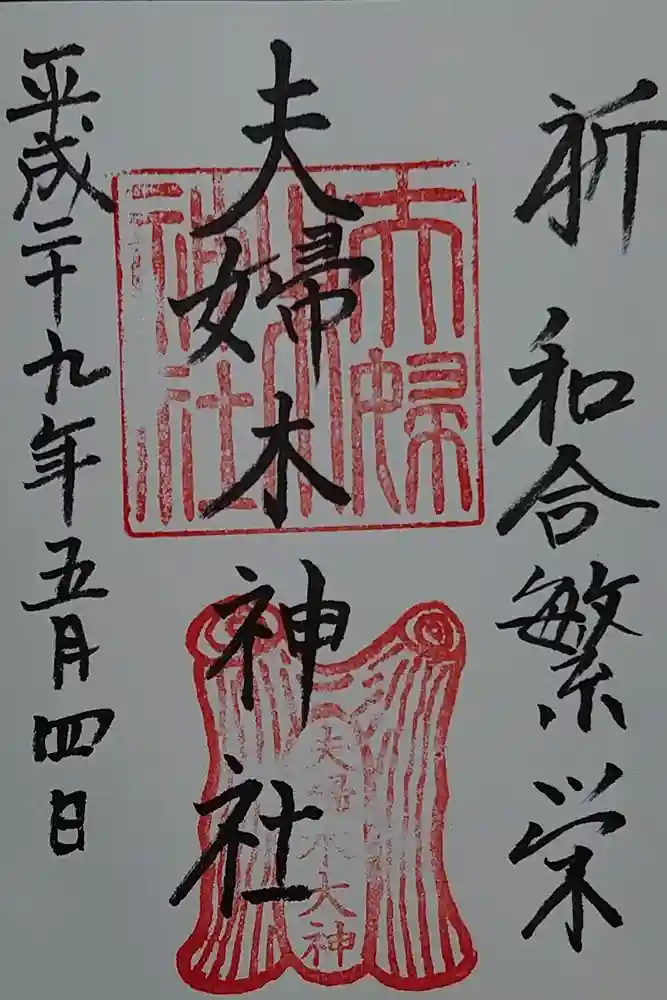 祈 和合繁栄
夫婦木神社
夫婦木神社
夫婦木大神
平成二十九年五月四日